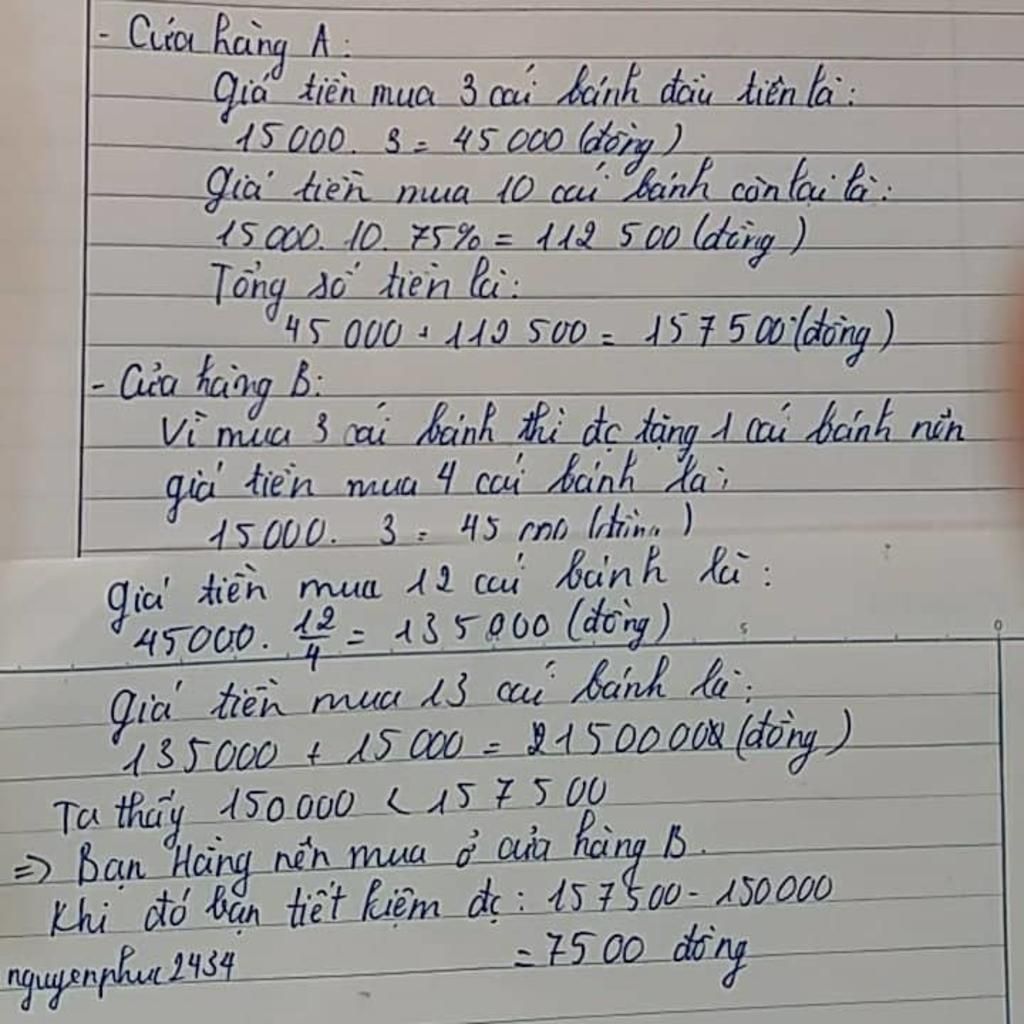 - Cửa hàng A:
Giá tiền mua 3 cái bánh đầu tiên là:
15000. 3 = 45 000 (đồng)
Giá tiền mua 10 cái bánh còn lại là:
15 000. 10. 75% = 112 500 (đồng)
Tổng số tiền là:
45 000 + 112 500 = 157 500 (đồng)
- Cửa hàng B:
Vì mua 3 cái bánh thì đc tặng 1 cái bánh nên
giá tiền mua 4 cái bánh là:
15 000. 3 = 45
giá tiền mua 12 cái bánh là:
45000. 12/4 = 135000 (đồng)
giá tiền mua 13 cái bánh là:
135000 + 15 000 = (đồng)
Ta thấy 150000 < 157 500
=> Bạn Hằng nên mua ở cửa hàng B.
Khi đó bạn tiết kiệm đc: 157500 - 150000
= 7500 đồng
nguyenphuc2434